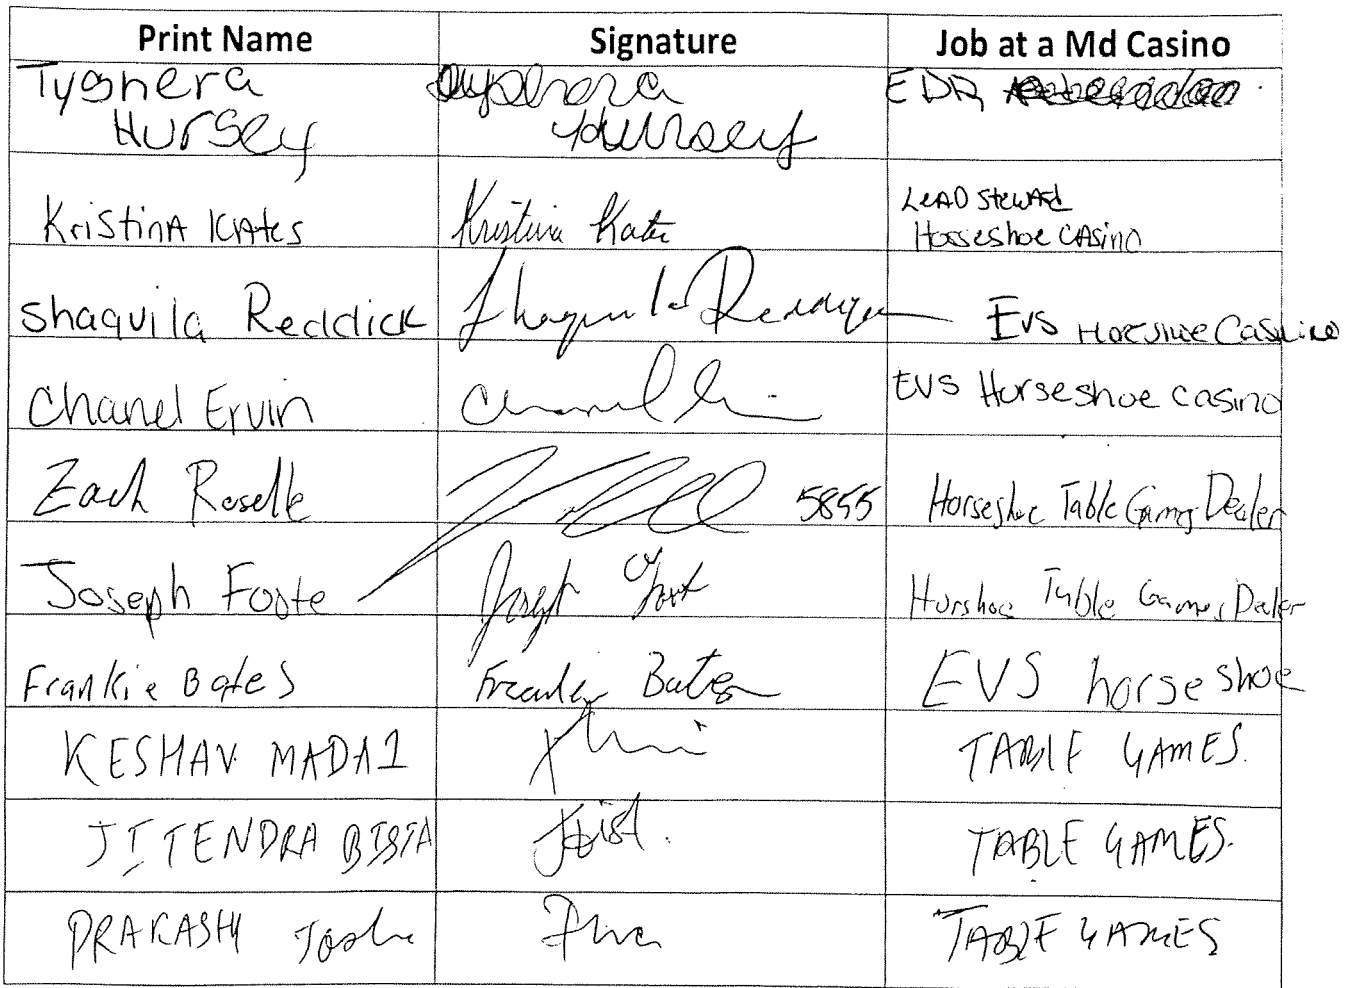 Print Name Signature Job at a Md Casino
Tyshera EDR
Hursey Hursey
Kristina Kates Kristina Kates Lead Steward
Horseshoe Casino
Shaquila Reddick Shaquila Reddick EVS Horeshoe Casino
Chanel Ervin Chanel EVS Horseshoe casino
Zach Roselle 5855 Horseshoe Table Games Dealer
Joseph Foote Joseph Foote Horshoe Table Games Dealer
Frankie Bates Frankie Bates EVS horseshoe
KESHAV MADAI TABLE GAMES.
JITENDRA BISTA Bist. TABLE GAMES.
PRAKASH Joshi TABLE GAMES